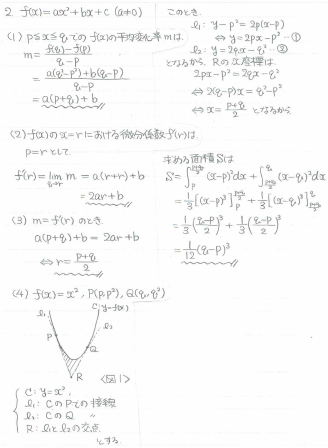 2. f(x)=ax²+bx+c (a≠0)
(1) p≦x≦qでのf(x)の平均変化率mは、
m = (f(q)-f(p))/(q-p)
= (a(q²-p²)+b(q-p))/(q-p)
= a(p+q)+b
(2) f(x)のx=rにおける微分係数f'(r)は、
p=rとして
f'(r)=lim[q→r] m = a(r+r)+b
= 2ar+b
(3) m=f'(r)のとき
a(p+q)+b = 2ar+b
⇔ r=(p+q)/2
(4) f(x)=x², P(p,p²), Q(q,q²)
l₁
C:y=f(x)
l₂
P
Q
R
<図1>
C: y=x²,
l₁: CのPでの接線
l₂: CのQ 〃
R: l₁とl₂の交点
とする
このとき、
l₁: y-p²=2p(x-p)
⇔ y=2px-p² …①
l₂: y=2qx-q² …②
となるから、Rのx座標は
2px-p²=2qx-q²
⇔ 2(q-p)x=q²-p²
⇔ x=(p+q)/2 となるから
求める面積Sは
S=∫[p→(p+q)/2](x-p)²dx+∫[(p+q)/2→q](x-q)²dx
=1/3[(x-p)³][p→(p+q)/2]+1/3[(x-q)³][(p+q)/2→q]
=1/3((q-p)/2)³+1/3((q-p)/2)³
=1/12(q-p)³